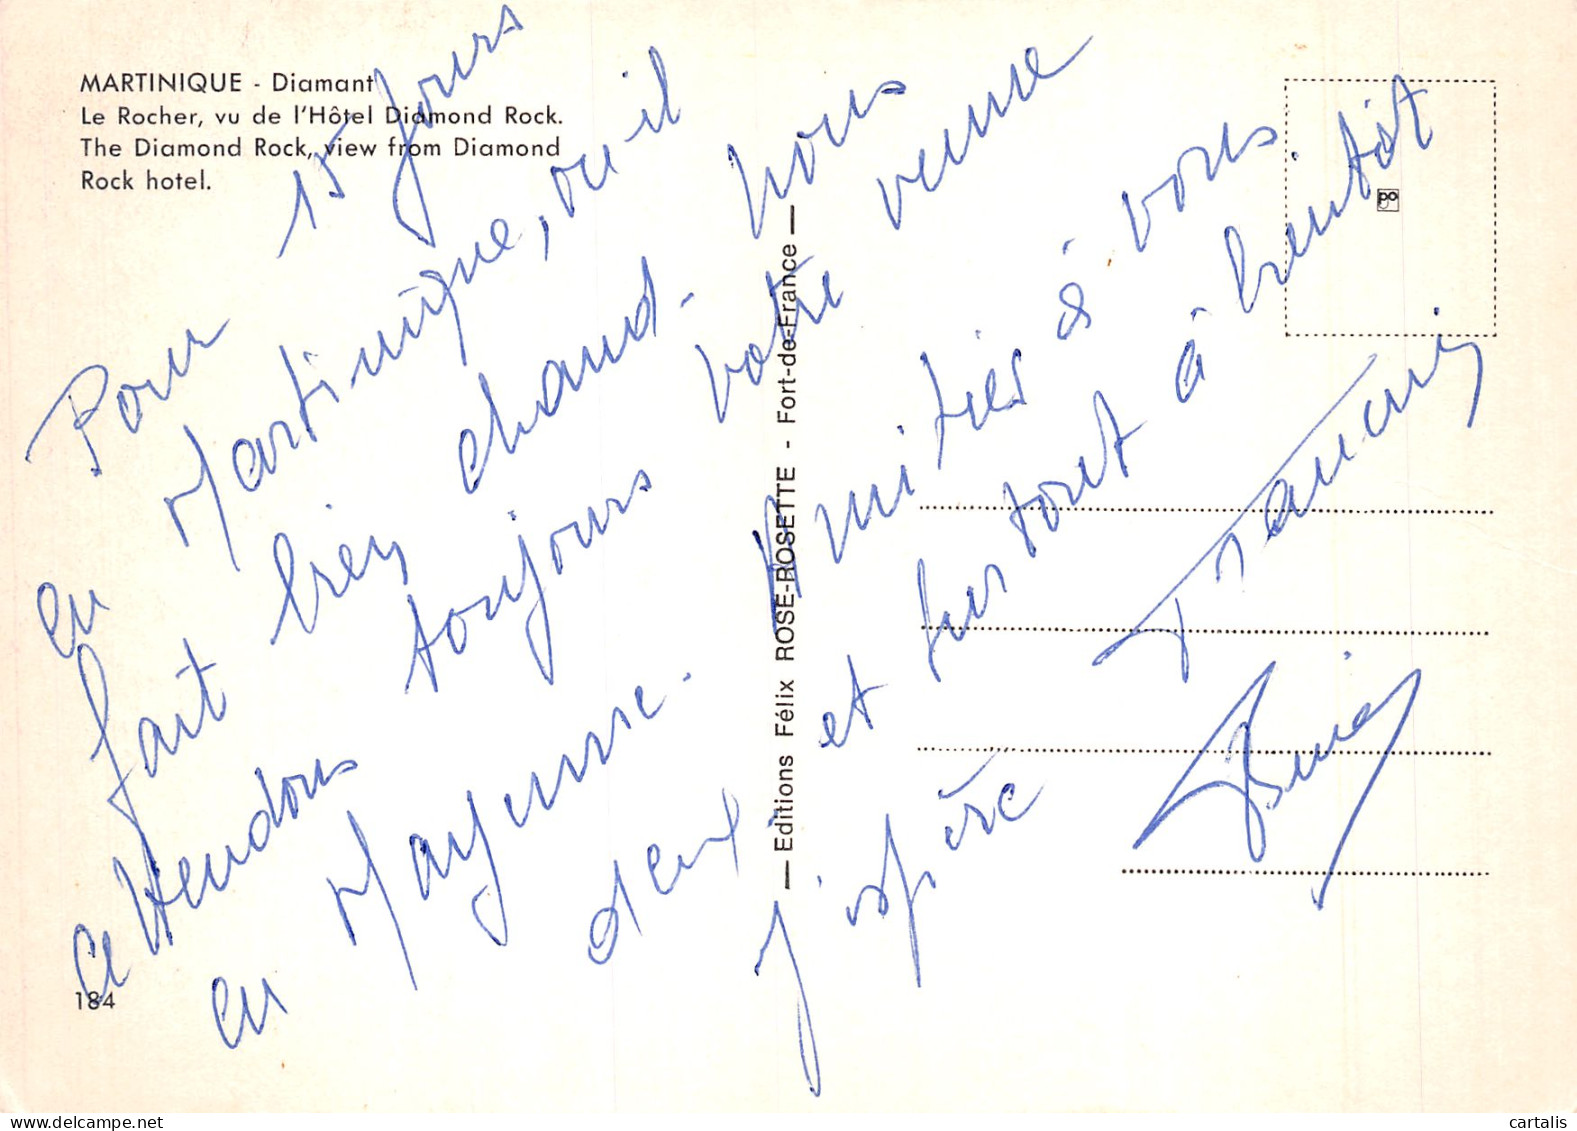 MARTINIQUE - Diamant
Le Rocher, vu de l'Hôtel Diamond Rock.
The Diamond Rock, view from Diamond
Rock hotel.
Pour 15 jours
en Martinique, ou il
fait bien chaud - nous
attendons toujours votre venue
en Mayenne.
Amitiés à vous
deux et surtout à bientôt
j'espère
184
— Editions Félix ROSE-ROSETTE - Fort-de-France —
cartalis